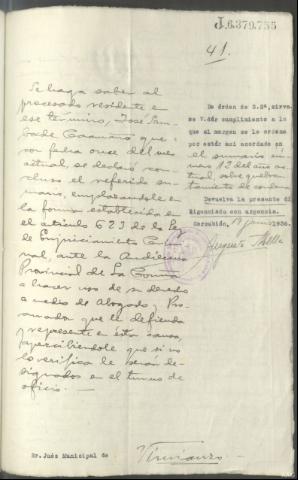 J.6.379.755
41.
Se haga saber al
procesado residente en
ese término, José
Caamaño que
con fecha once del mes
actual, se declaró con-
cluso el referido su-
mario, emplazándole en
la forma establecida en
el artículo 623 de la Ley
de Enjuiciamiento Cri-
minal, ante la Audiencia
Provincial de La Coruña
a hacer uso de su derecho
a medio de Abogado y Pro-
curador que le defienda
y represente en esta causa,
apercibiéndole que si no
lo verifica le serán de-
signados en el turno de
oficio.
De órden de S.Sª, sirva-
se V. dar cumplimiento a
lo que al margen se le ordena
por estár así acordado en
el sumario nú-
mero 13 del año ac-
tual, sobre quebran-
tamiento de condena
Devuelva la presente di-
ligenciada con urgencia.
Corcubión, 1936.
Sr. Juéz Municipal de
Vimianzo.